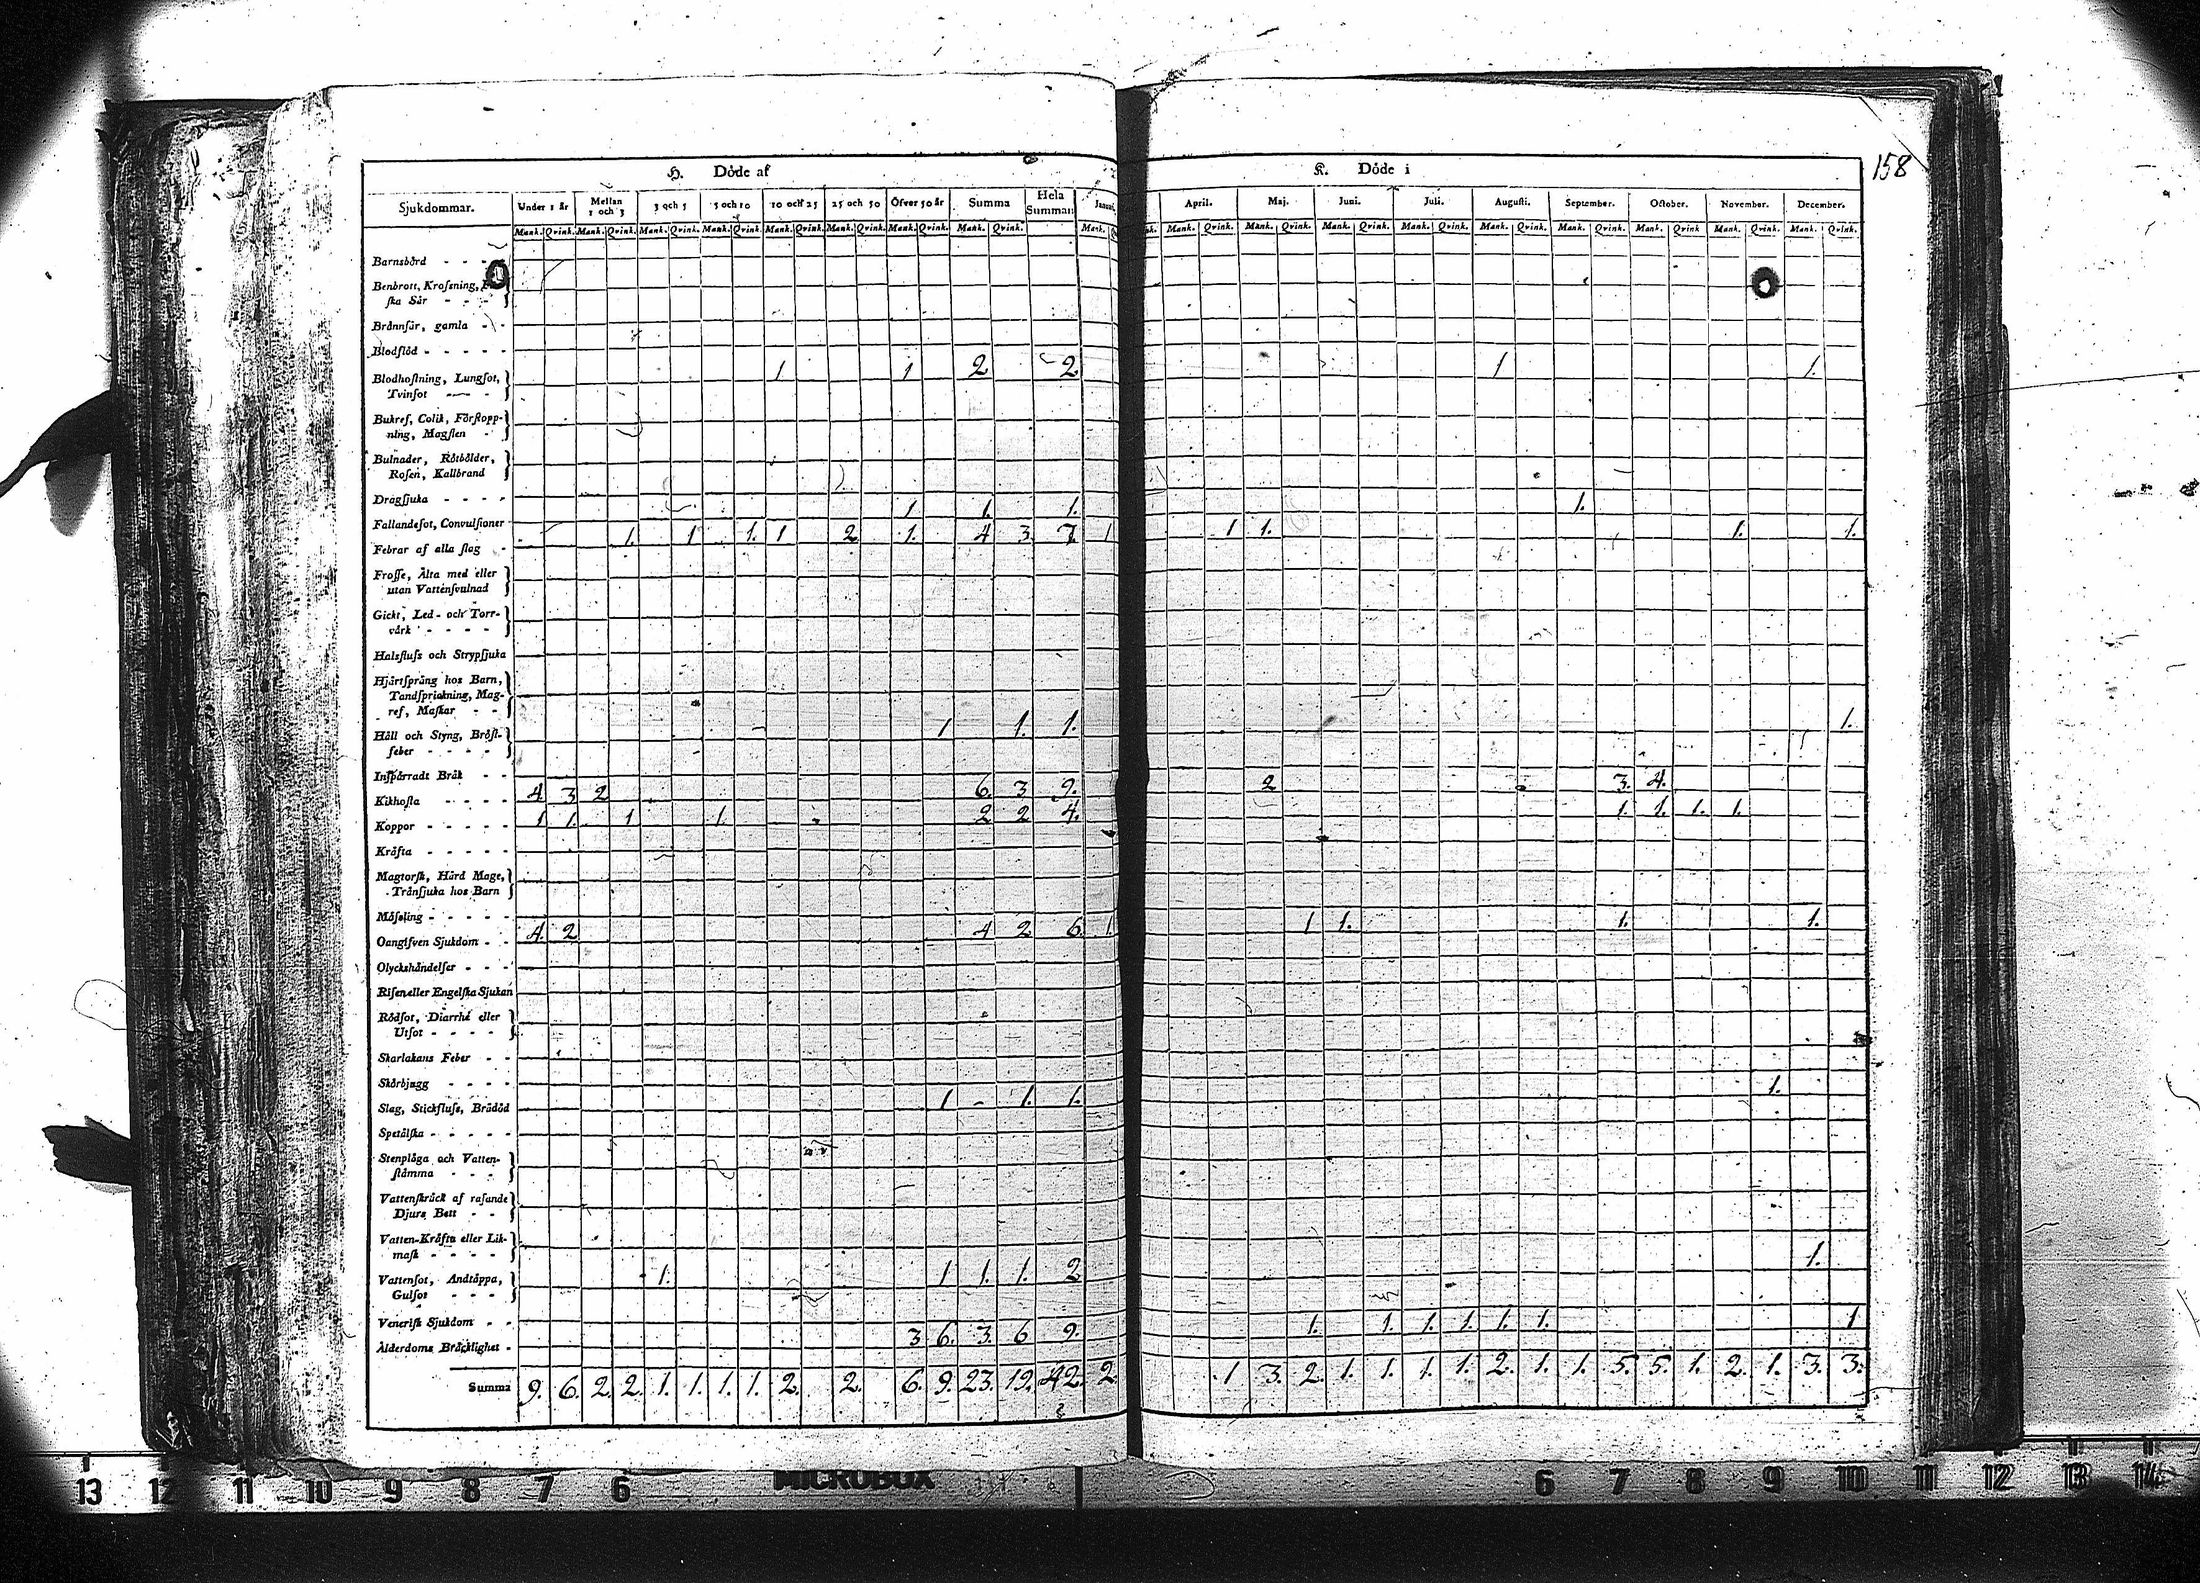 158
H. Döde af
K. Döde i
Sjukdommar. Under 1 år Mellan 1 och 3 3 och 5 5 och 10 10 och 25 25 och 50 Öfver 50 år Summa Hela Summan April. Maj. Juni. Juli. Augusti. September. October. November. December.
Mank. Qvink. Mank. Qvink. Mank. Qvink. Mank. Qvink. Mank. Qvink. Mank. Qvink. Mank. Qvink. Mank. Qvink. Mank. Mank. Qvink. Mank. Qvink. Mank. Qvink. Mank. Qvink. Mank. Qvink. Mank. Qvink. Mank. Qvink Mank. Qvink. Mank. Qvink.
Barnsbörd
Benbrott, Krosning,
ska Sår
Brännsår, gamla
Blodflöd
Blodhostning, Lungsot, 1 1 2 2 1 1.
Tvinsot
Bukref, Colik, Förstopp-
ning, Magsten
Bulnader, Rötbölder,
Rosen, Kallbrand
Dragsjuka
Fallandesot, Convulsioner 1 1. 1. 1.
Febrar af alla slag 1. 1 1. 1 2 1. 4 3. 7. 1 1 1. 1. 1.
Frosse, Älta med eller
utan Vattensvulnad
Gickt, Led- och Torr-
värk
Halsfluss och Strypsjuka
Hjärtsprång hos Barn,
Tandsprickning, Mag-
ref, Maskar
Håll och Styng, Bröst- 1 1. 1. 1.
feber
Inspärradt Bråk
Kikhosta 4 3 2 6. 3 9. 2 3. 4.
Koppor 1 1. 1 1. 2 2 4. 1. 1. 1. 1.
Kräfta
Magtorsk, Hård Mage,
Trånsjuka hos Barn
Mäsling
Oangifven Sjukdom 4. 2 4 2 6. 1. 1 1. 1. 1.
Olyckshändelser
Risen eller Engelska Sjukan
Rödsot, Diarrhé eller
Utsot
Skarlakans Feber
Skörbjugg
Slag, Stickfluss, Brådöd 1 1. 1. 1.
Spetälska
Stenplåga och Vatten-
stämma
Vattenskräck af rasande
Djurs Bett
Vatten-Kräfta eller Lik-
mask
Vattensot, Andtäppa, 1. 1 1. 1. 2 1.
Gulsot
Venerisk Sjukdom
Ålderdoms Bräcklighet 3 6. 3. 6 9. 1. 1. 1. 1. 1. 1. 1
Summa 9. 6. 2. 2. 1. 1. 1. 1. 2. 2. 6. 9. 23. 19. 42. 2. 1 3. 2. 1. 1. 1. 1. 2. 1. 1. 5. 5. 1. 2. 1. 3. 3.
13 12 11 10 9 8 7 6 MICROBOX 6 7 8 9 10 11 12 13 14